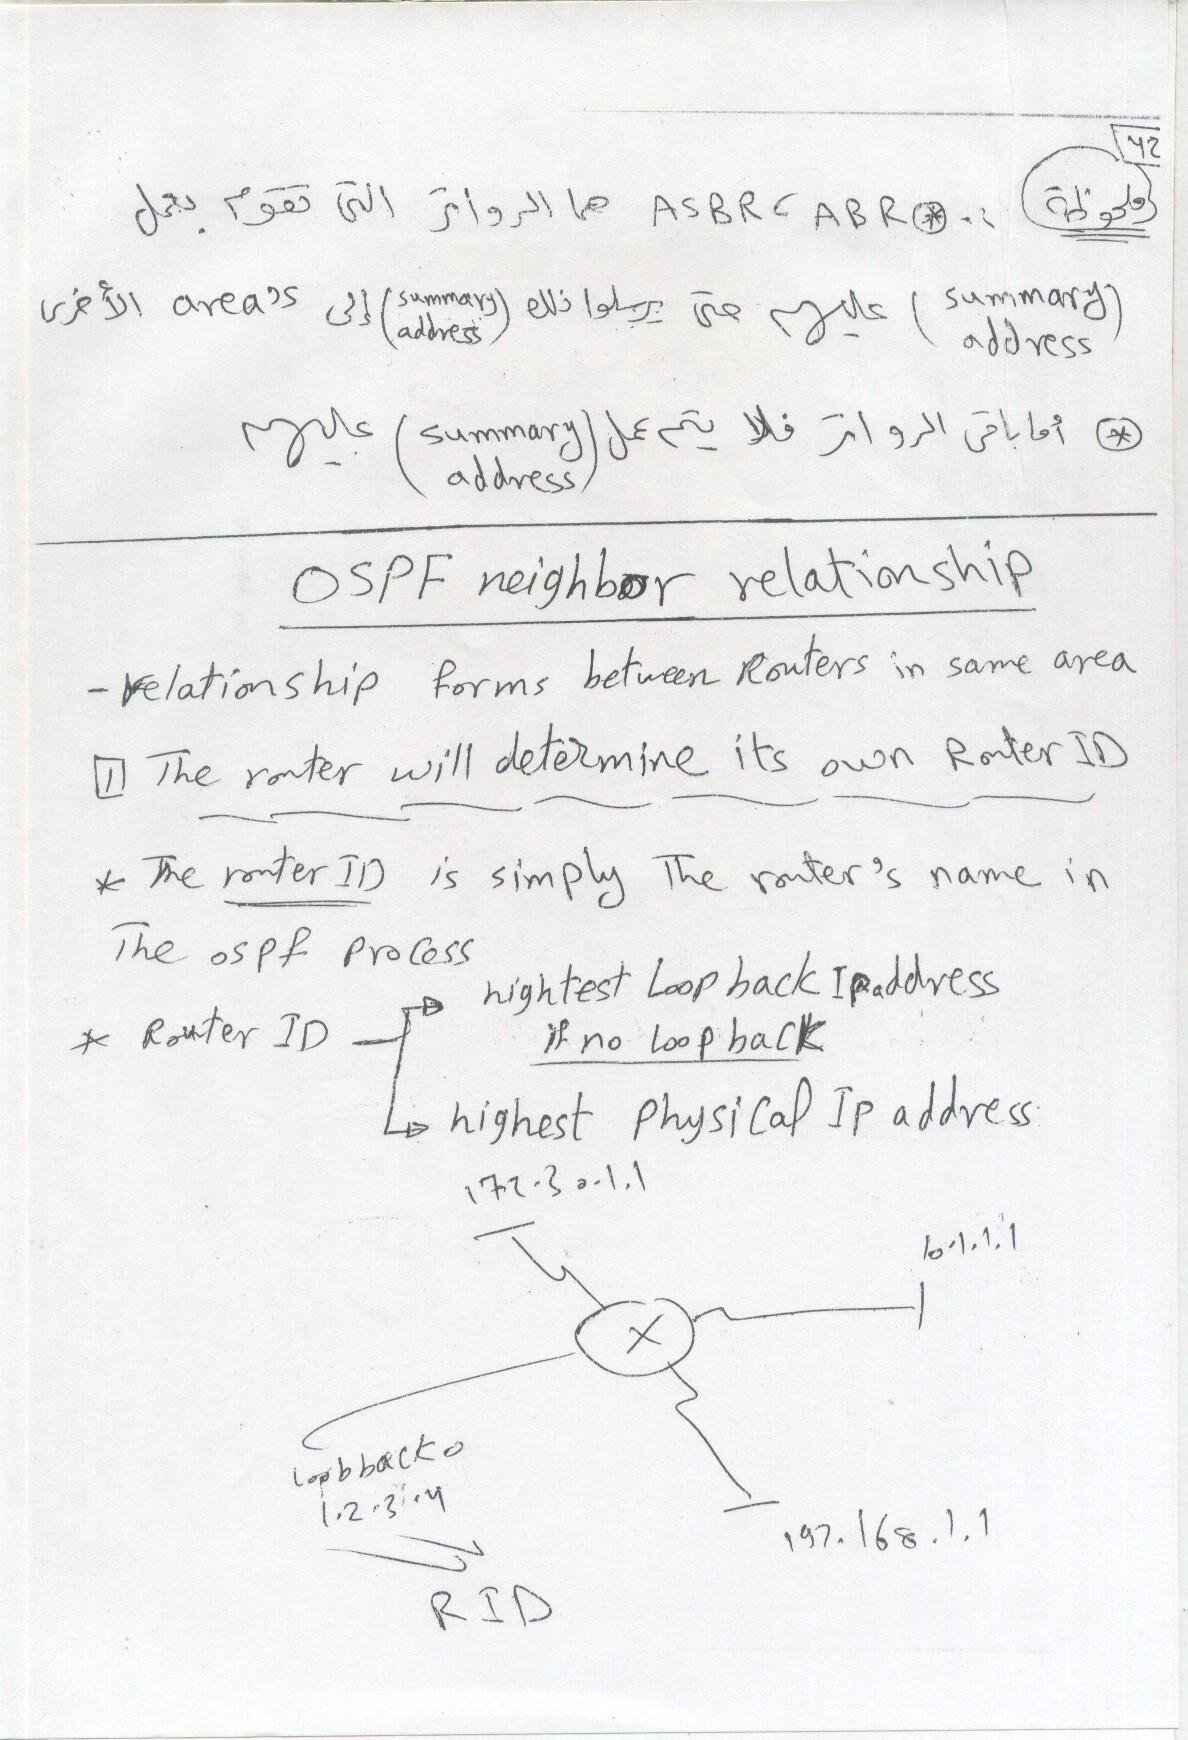 42
ملحوظة :-
⊛ ABR ، ASBR هما الرواتر التى تقوم بعمل
(summary address) عليهم حتى يرسلوا ذلك (summary address) إلى area's الأخرى
⊛ أما باقى الرواتر فلا يتم عمل (summary address) عليهم
OSPF neighbor relationship
- relationship forms between Routers in same area
1 The router will determine its own Router ID
* The router ID is simply The router's name in
The ospf process
hightest Loop back Ip address
* Router ID
if no Loop back
highest physical Ip address
172.30.1.1
10.1.1.1
loopback0
1.2.3.4
192.168.1.1
RID